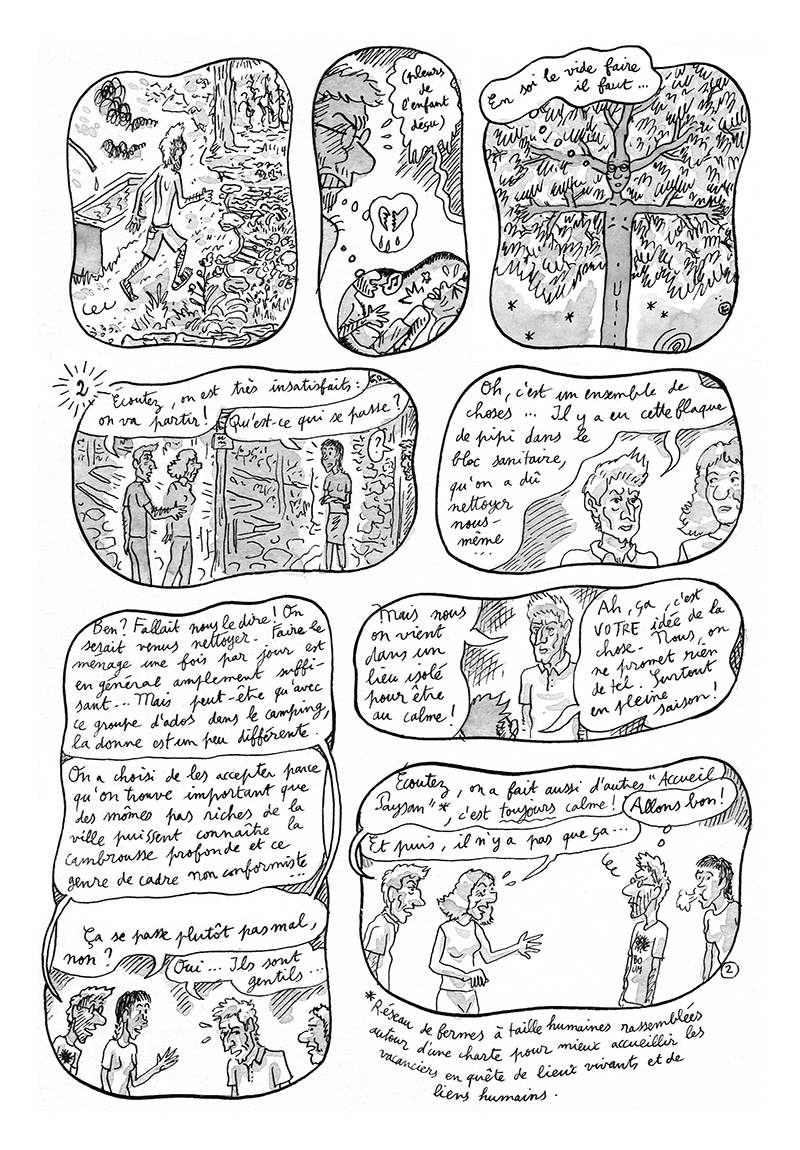 (pleurs
de
l'enfant
déçu)
En soi le vide faire
il faut...
2
Écoutez, on est très insatisfaits:
on va partir!
Qu'est-ce qui se passe?
?
Oh, c'est un ensemble de
choses... Il y a eu cette flaque
de pipi dans le
bloc sanitaire,
qu'on a dû
nettoyer
nous-
même
...
Ben? Fallait nous le dire! On
serait venus nettoyer. Faire le
ménage une fois par jour est
en général amplement suffi-
sant... Mais peut-être qu'avec
ce groupe d'ados dans le camping,
la donne est un peu différente.
On a choisi de les accepter parce
qu'on trouve important que
des mômes pas riches de la
ville puissent connaître la
cambrousse profonde et ce
genre de cadre non conformiste...
Ça se passe plutôt pas mal,
non?
Oui... Ils sont
gentils...
Mais nous
on vient
dans un
lieu isolé
pour être
au calme!
Ah, ça, c'est
VOTRE idée de la
chose. Nous, on
ne promet rien
de tel. Surtout
en pleine
saison!
Écoutez, on a fait aussi d'autres "Accueil
Paysan"*, c'est toujours calme!
Allons bon!
Et puis, il n'y a pas que ça...
BO
UM
2
*Réseau de fermes à taille humaines rassemblées
autour d'une charte pour mieux accueillir les
vacanciers en quête de lieux vivants et de
liens humains.